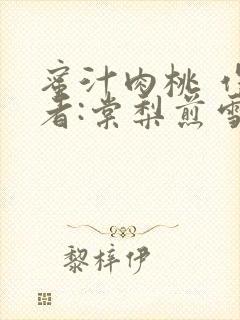 蜜汁肉桃 作
者:棠梨煎雪
黎梓伊